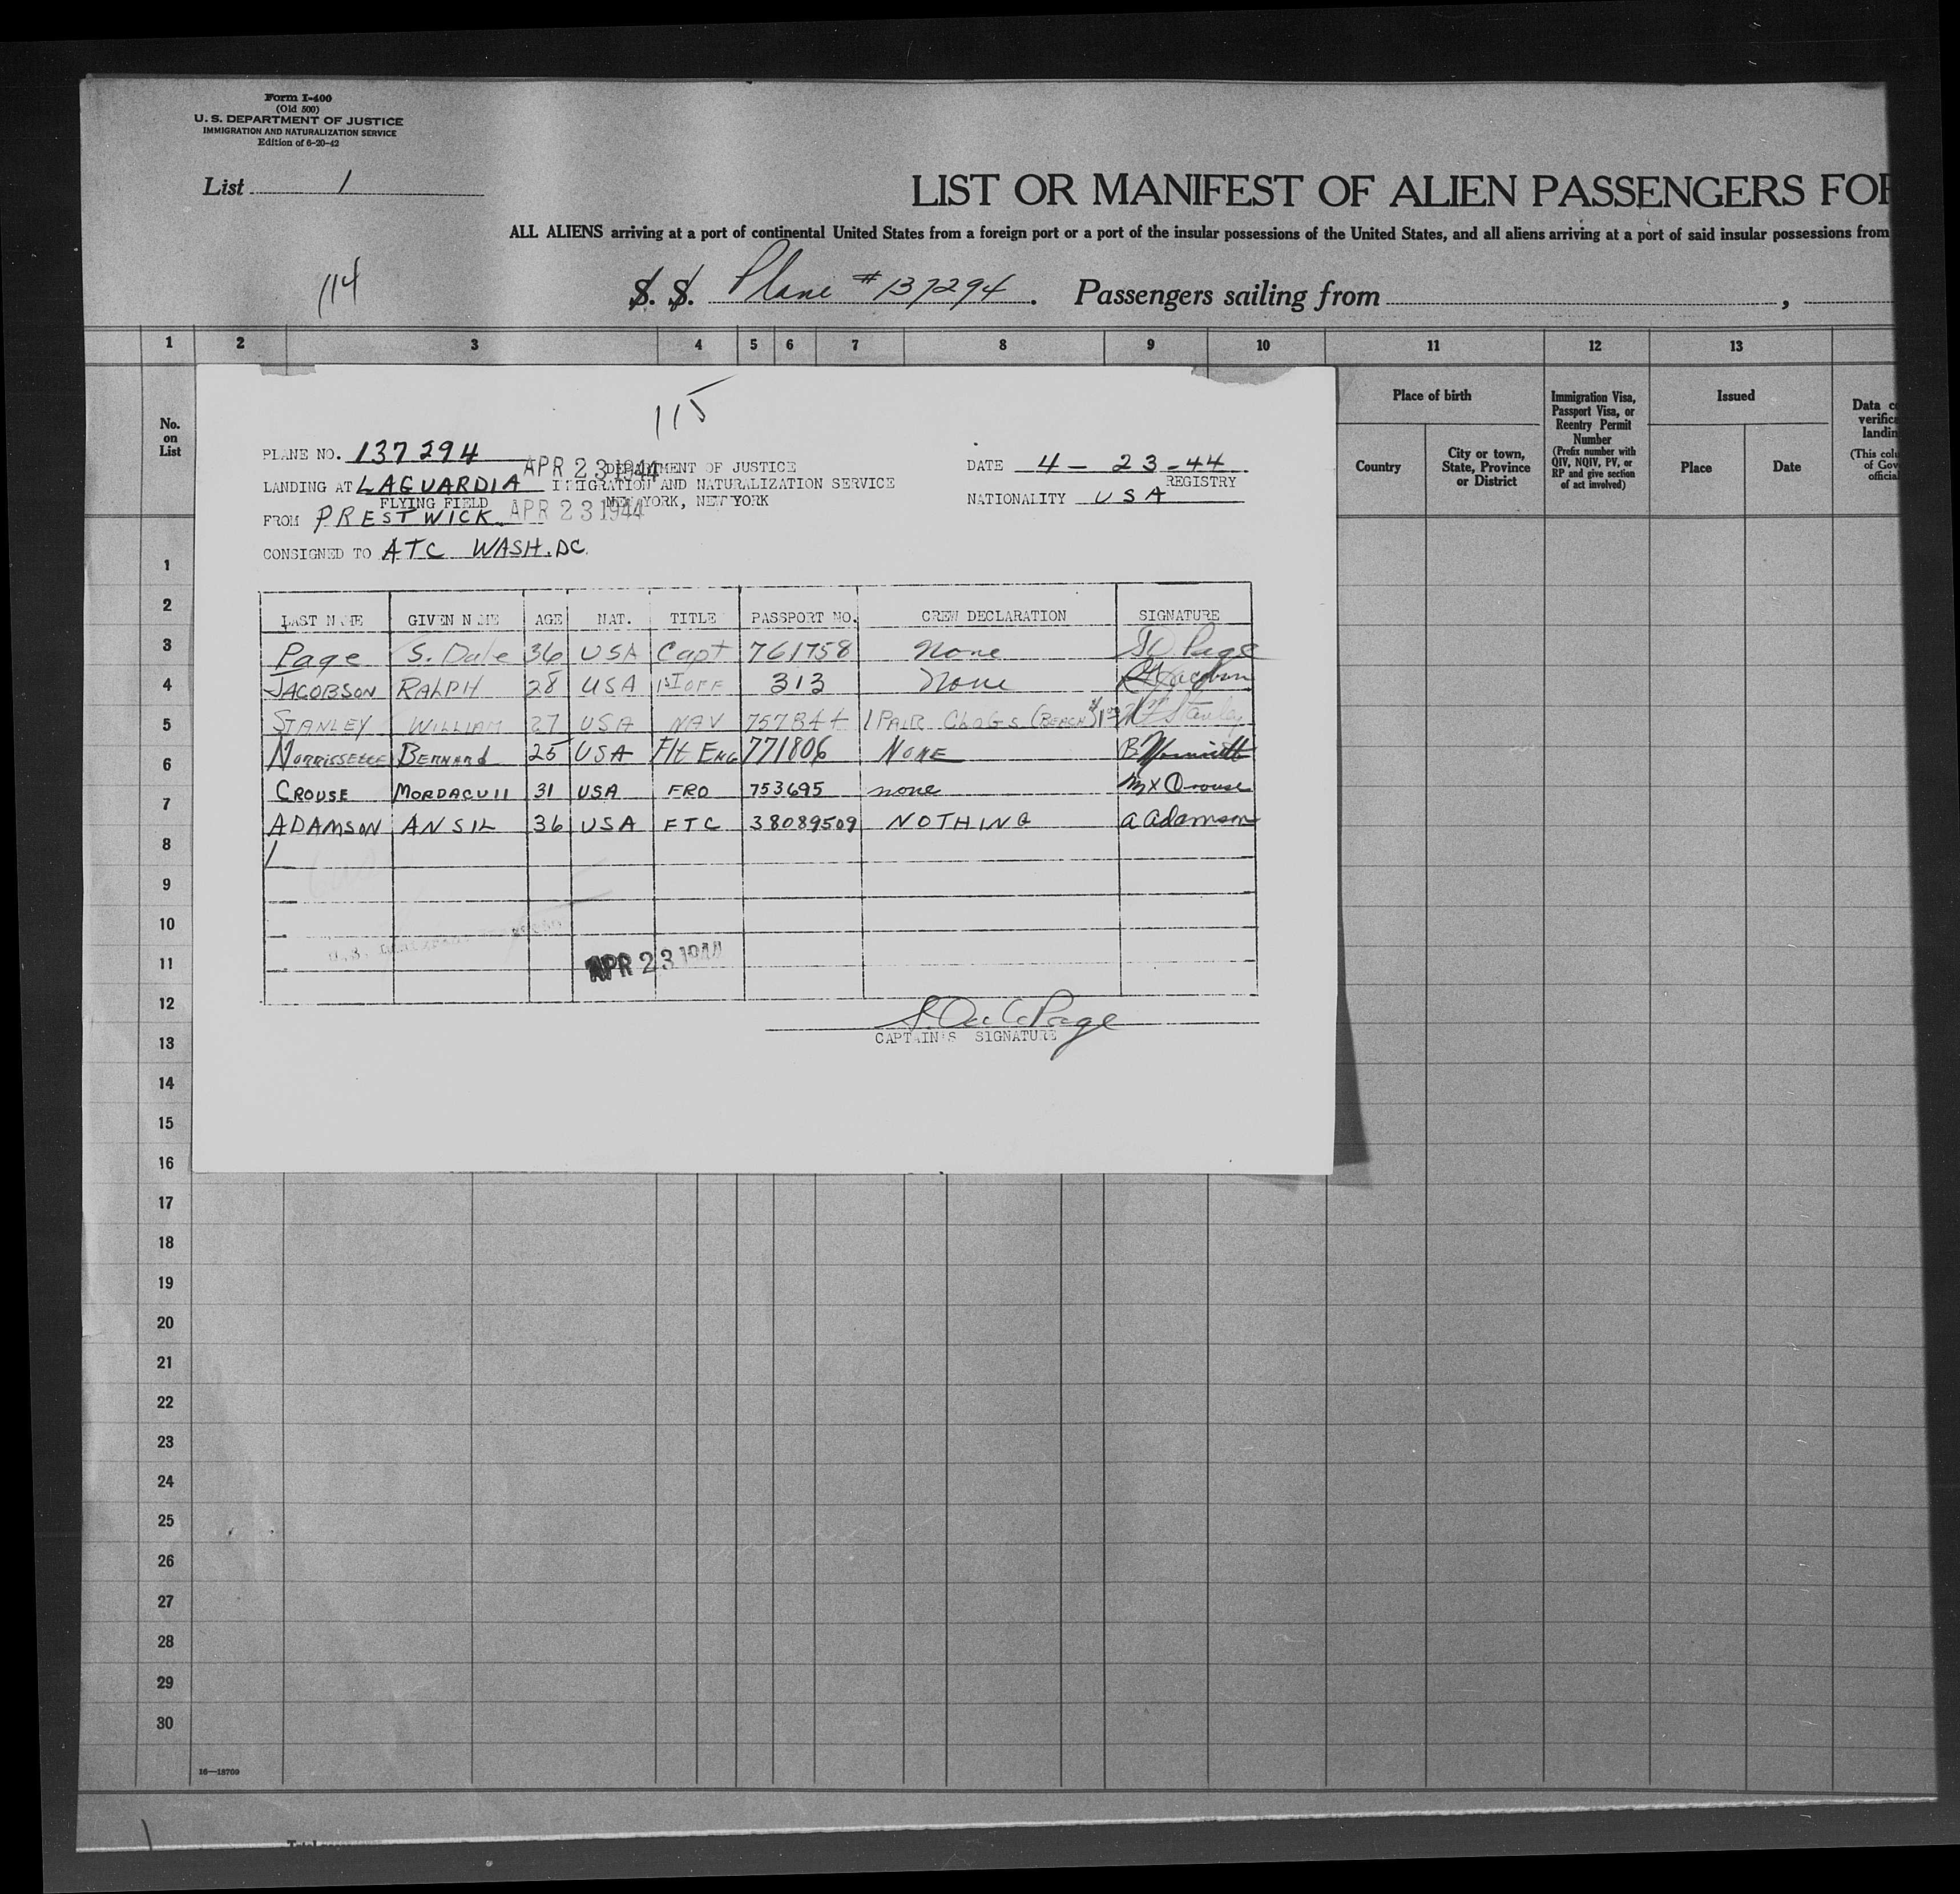 Form I-400
(Old 500)
U. S. DEPARTMENT OF JUSTICE
IMMIGRATION AND NATURALIZATION SERVICE
Edition of 6-20-42
List 1
LIST OR MANIFEST OF ALIEN PASSENGERS FOR
ALL ALIENS arriving at a port of continental United States from a foreign port or a port of the insular possessions of the United States, and all aliens arriving at a port of said insular possessions from
114
S. S. Plane #137294. Passengers sailing from ,
1 2 3 4 5 6 7 8 9 10 11 12 13
No. on List
Place of birth
Country
City or town, State, Province or District
Immigration Visa, Passport Visa, or Reentry Permit Number
(Prefix number with QIV, NQIV, PV, or RP and give section of act involved)
Issued
Place
Date
115
PLANE NO. 137294
APR 23 1944
DEPARTMENT OF JUSTICE
DATE 4 - 23 - 44
LANDING AT LAGUARDIA
IMMIGRATION AND NATURALIZATION SERVICE
REGISTRY
FLYING FIELD
NEW YORK, NEW YORK
NATIONALITY USA
FROM PRESTWICK
APR 23 1944
CONSIGNED TO ATC WASH. DC.
LAST NAME GIVEN NAME AGE NAT. TITLE PASSPORT NO. CREW DECLARATION SIGNATURE
Page S. Dale 36 USA Capt 761758 None SD Page
JACOBSON RALPH 28 USA 1st OFF 313 None
STANLEY WILLIAM 27 USA NAV 757844 1 PAIR CLOGS (BEACH) Stanley
MORRISSETTE BERNARD 25 USA Flt ENG 771806 NONE
CROUSE MORDACUII 31 USA FRO 753695 none M x Crouse
ADAMSON ANSIL 36 USA FTC 38089509 NOTHING A Adamson
APR 23 1944
S. Dale Page
CAPTAIN'S SIGNATURE
1
2
3
4
5
6
7
8
9
10
11
12
13
14
15
16
17
18
19
20
21
22
23
24
25
26
27
28
29
30
16—18709